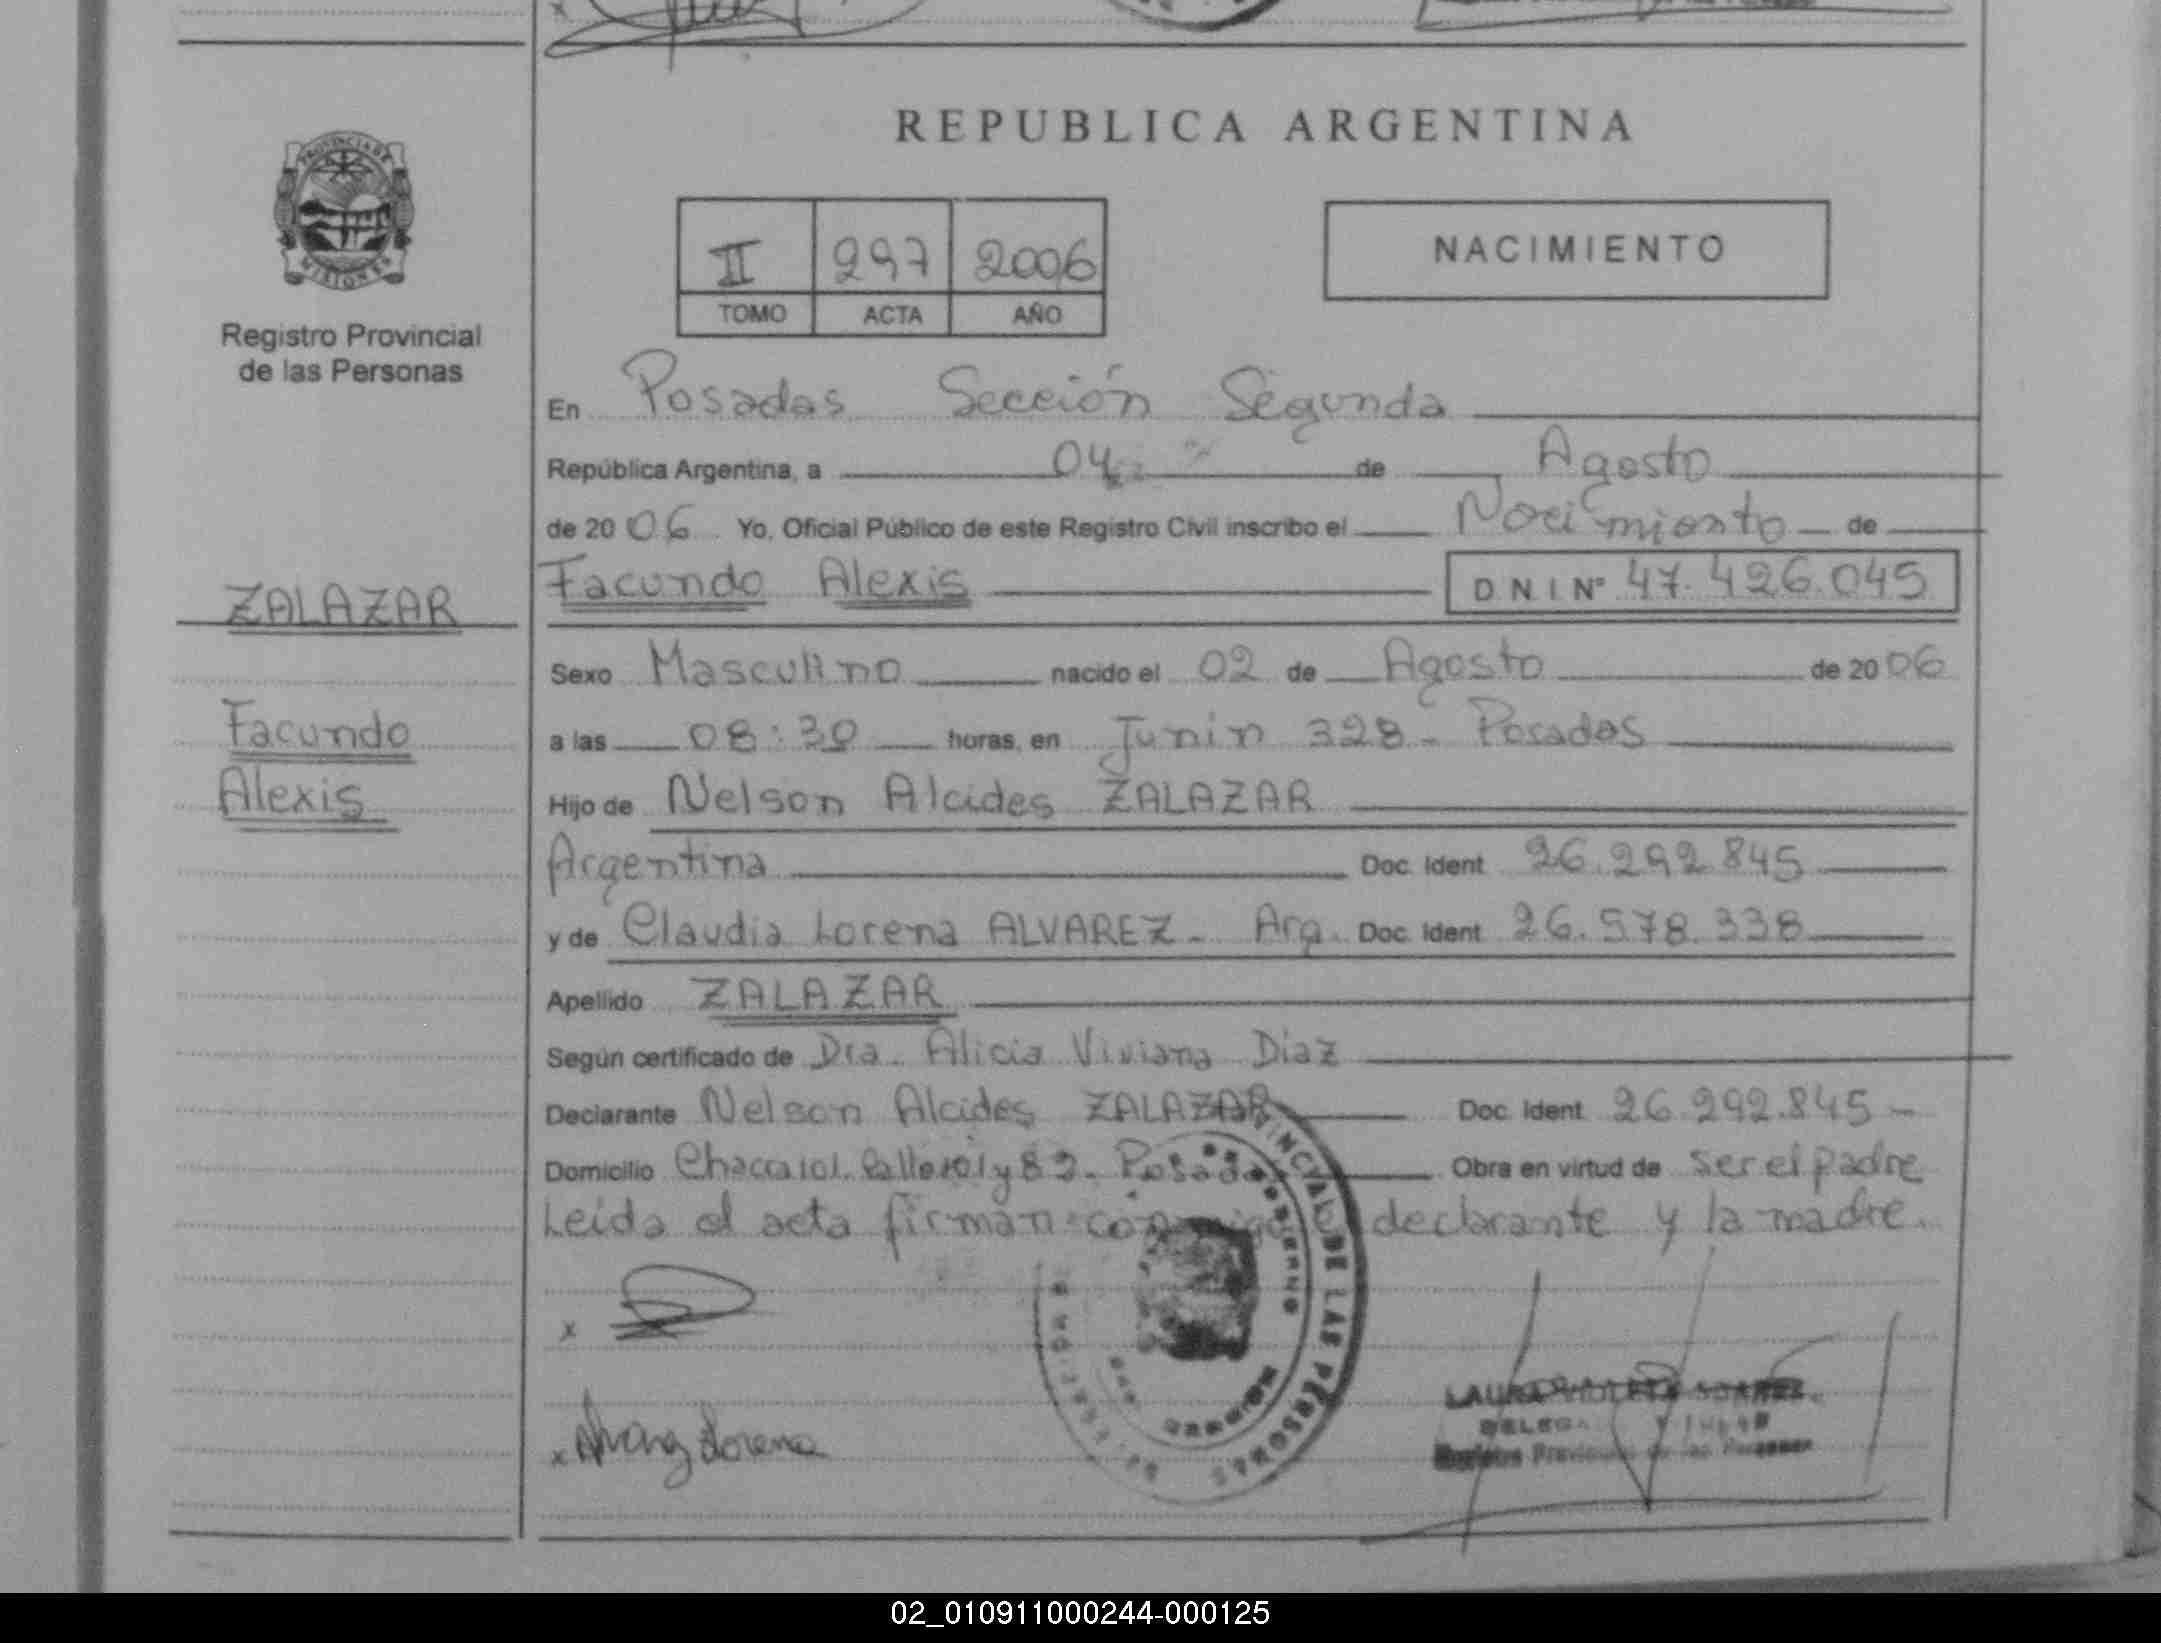 REPUBLICA ARGENTINA
PROVINCIA DE
MISIONES
Registro Provincial
de las Personas
II 297 2006
TOMO ACTA AÑO
NACIMIENTO
En Posadas Sección Segunda
República Argentina, a 04 de Agosto
de 2006 Yo, Oficial Público de este Registro Civil inscribo el Nacimiento de
Facundo Alexis D N I Nº 47.426.045
ZALAZAR
Facundo
Alexis
Sexo Masculino nacido el 02 de Agosto de 2006
a las 08:30 horas, en Junin 328 - Posadas
Hijo de Nelson Alcides ZALAZAR
Argentina Doc. Ident 26.292.845
y de Claudia Lorena ALVAREZ - Arg. Doc. Ident 26.578.338
Apellido ZALAZAR
Según certificado de Dra. Alicia Viviana Diaz
Declarante Nelson Alcides ZALAZAR Doc. Ident 26.292.845 -
Domicilio Chacra 101. Calle 101 y 83 - Posadas Obra en virtud de ser el padre
Leida el acta firman conmigo el declarante y la madre.
x
x Alvarez Lorena
PROVINCIAL DE LAS PERSONAS
LAURA
Registro Provincial de las Personas
02_010911000244-000125